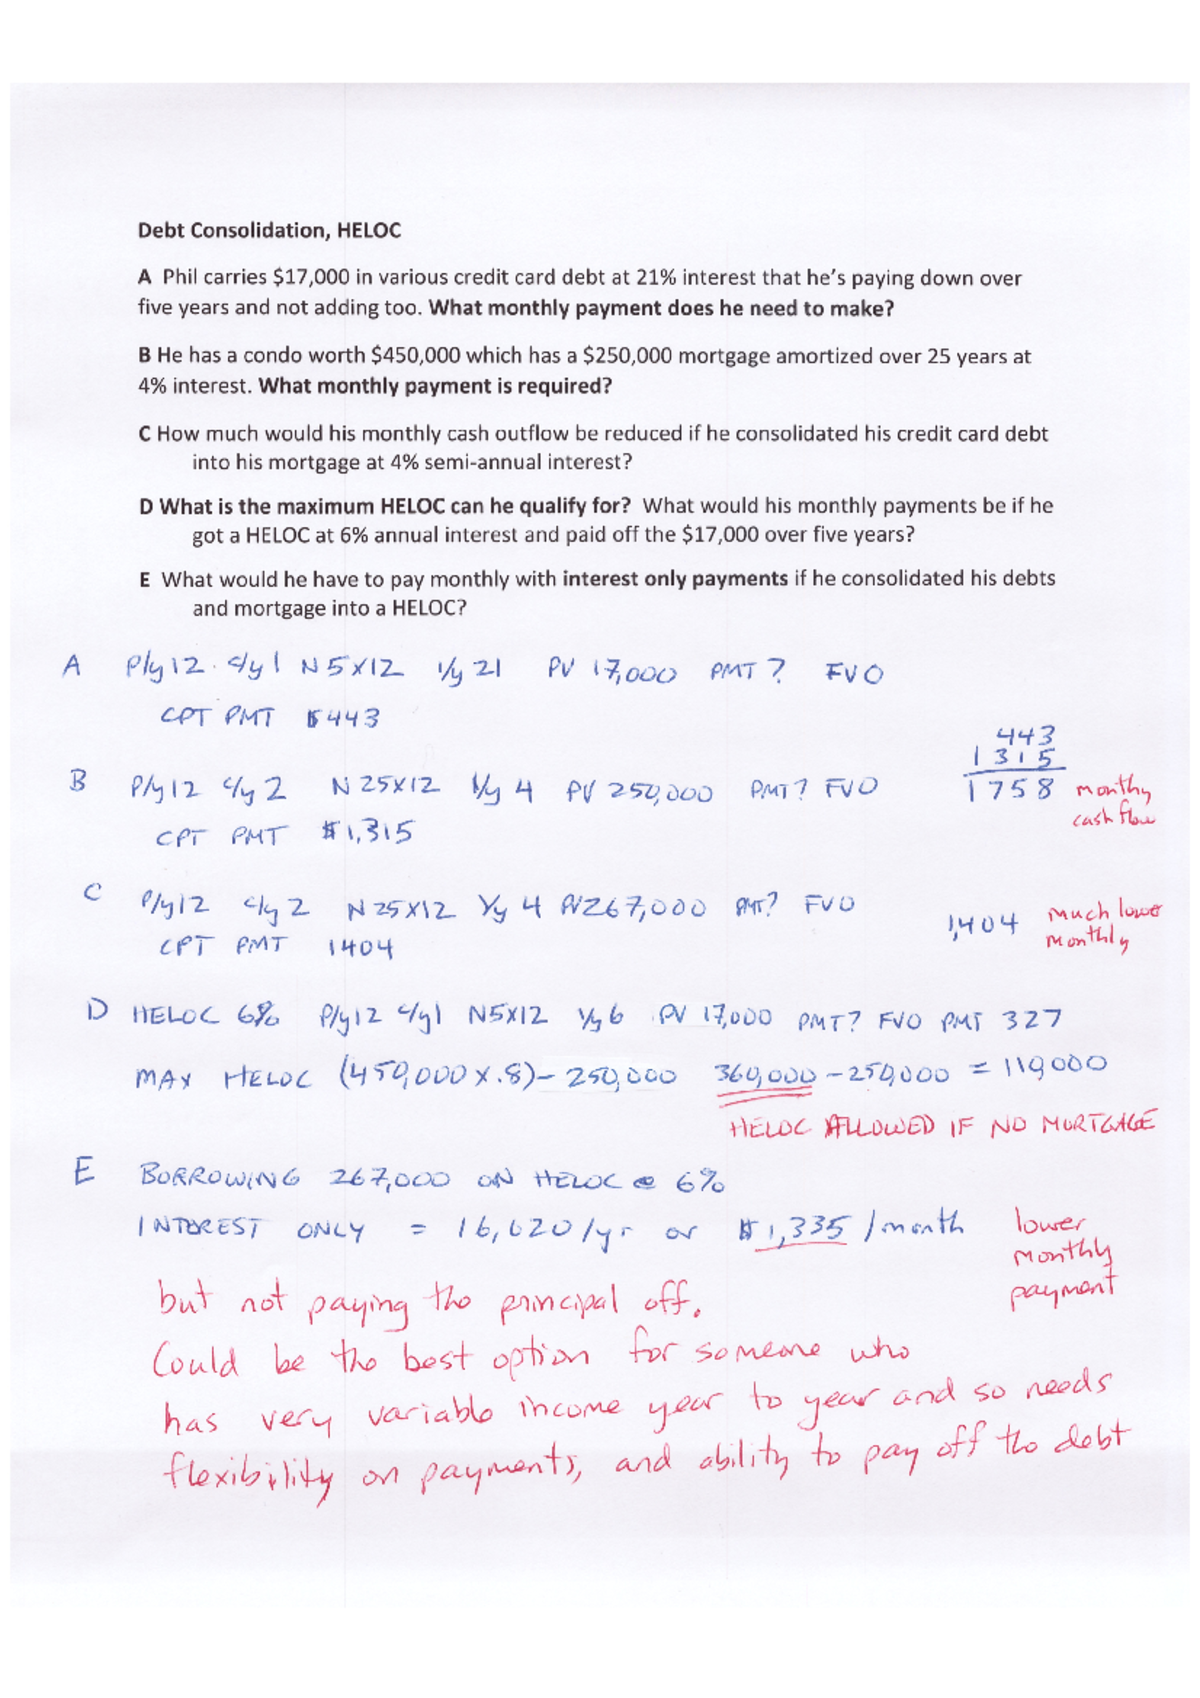 Debt Consolidation, HELOC
A Phil carries $17,000 in various credit card debt at 21% interest that he's paying down over
five years and not adding too. What monthly payment does he need to make?
B He has a condo worth $450,000 which has a $250,000 mortgage amortized over 25 years at
4% interest. What monthly payment is required?
C How much would his monthly cash outflow be reduced if he consolidated his credit card debt
into his mortgage at 4% semi-annual interest?
D What is the maximum HELOC can he qualify for? What would his monthly payments be if he
got a HELOC at 6% annual interest and paid off the $17,000 over five years?
E What would he have to pay monthly with interest only payments if he consolidated his debts
and mortgage into a HELOC?
A P/y 12 C/y 1 N 5X12 I/y 21 PV 17,000 PMT? FV0
CPT PMT $443
443
1315
1758 monthy
cash flow
B P/y 12 C/y 2 N 25X12 I/y 4 PV 250,000 PMT? FV0
CPT PMT $1,315
C P/y12 C/y 2 N 25X12 I/y 4 PV267,000 PMT? FV0
CPT PMT 1404
1,404 much lower
monthly
D HELOC 6% P/y12 C/y1 N5X12 I/y 6 PV 17,000 PMT? FV0 PMT 327
MAX HELOC (450,000 x .8) - 250,000 360,000 - 250,000 = 110,000
HELOC ALLOWED IF NO MORTGAGE
E BORROWING 267,000 ON HELOC @ 6%
INTEREST ONLY = 16,020/yr or $1,335/month
lower
monthly
payment
but not paying the principal off.
Could be the best option for someone who
has very variable income year to year and so needs
flexibility on payments, and ability to pay off the debt